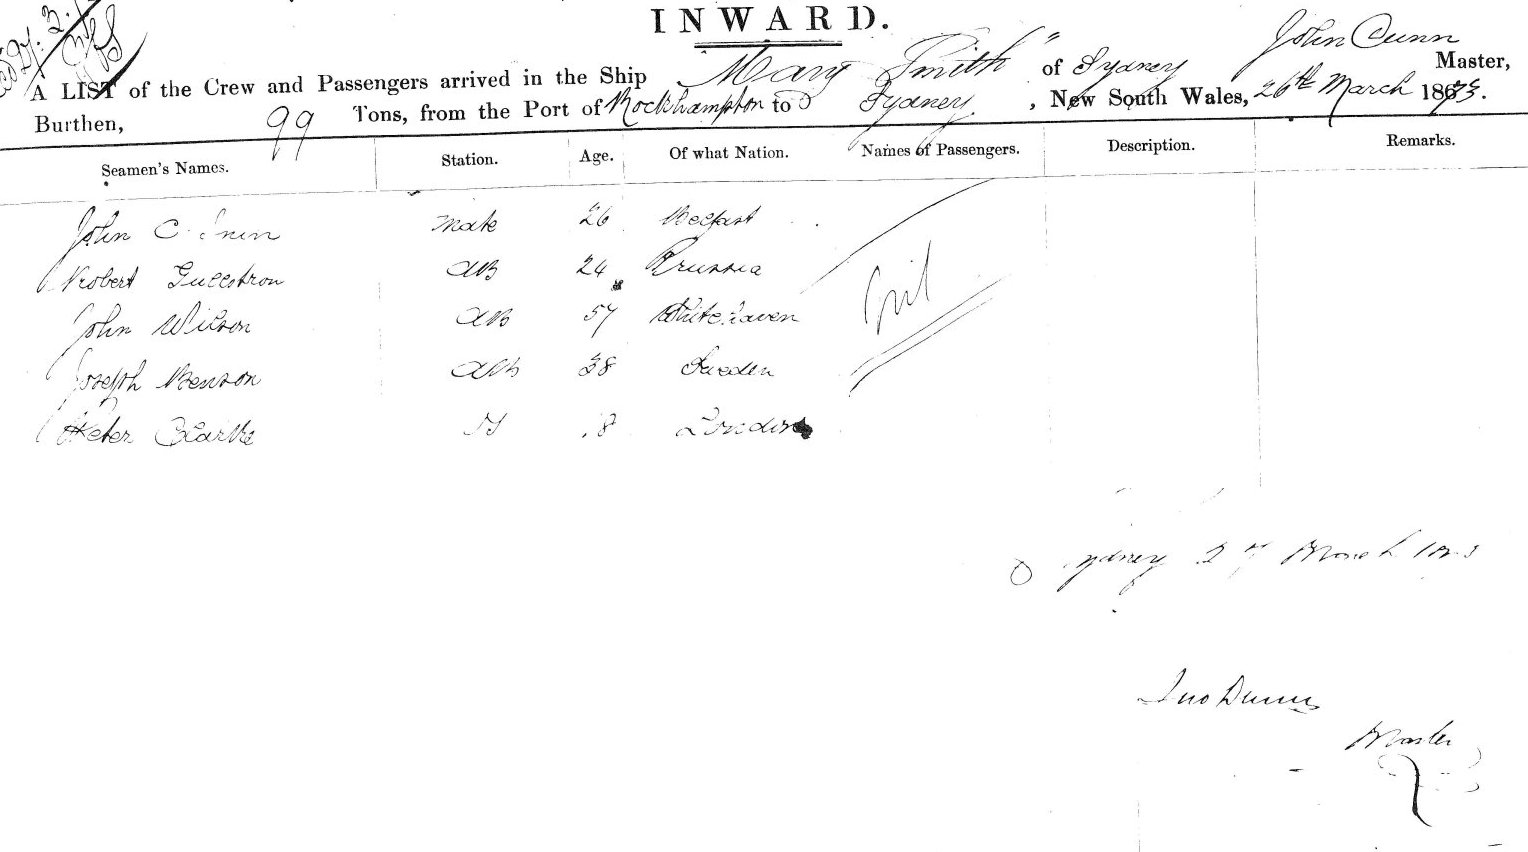 INWARD.
John Dunn
A LIST of the Crew and Passengers arrived in the Ship "Mary Smith" of Sydney Master,
Burthen, 99 Tons, from the Port of Rockhampton to Sydney, New South Wales, 26th March 1873.
Seamen's Names. Station. Age. Of what Nation. Names of Passengers. Description. Remarks.
John C Mate 26 Belfast
Robert AB 24 Prussia
John Wilson AB 57 Whitehaven
Joseph Benson AB 38 Sweden
Peter Clarke London
Nil
Sydney March
Jno Dunn
Master